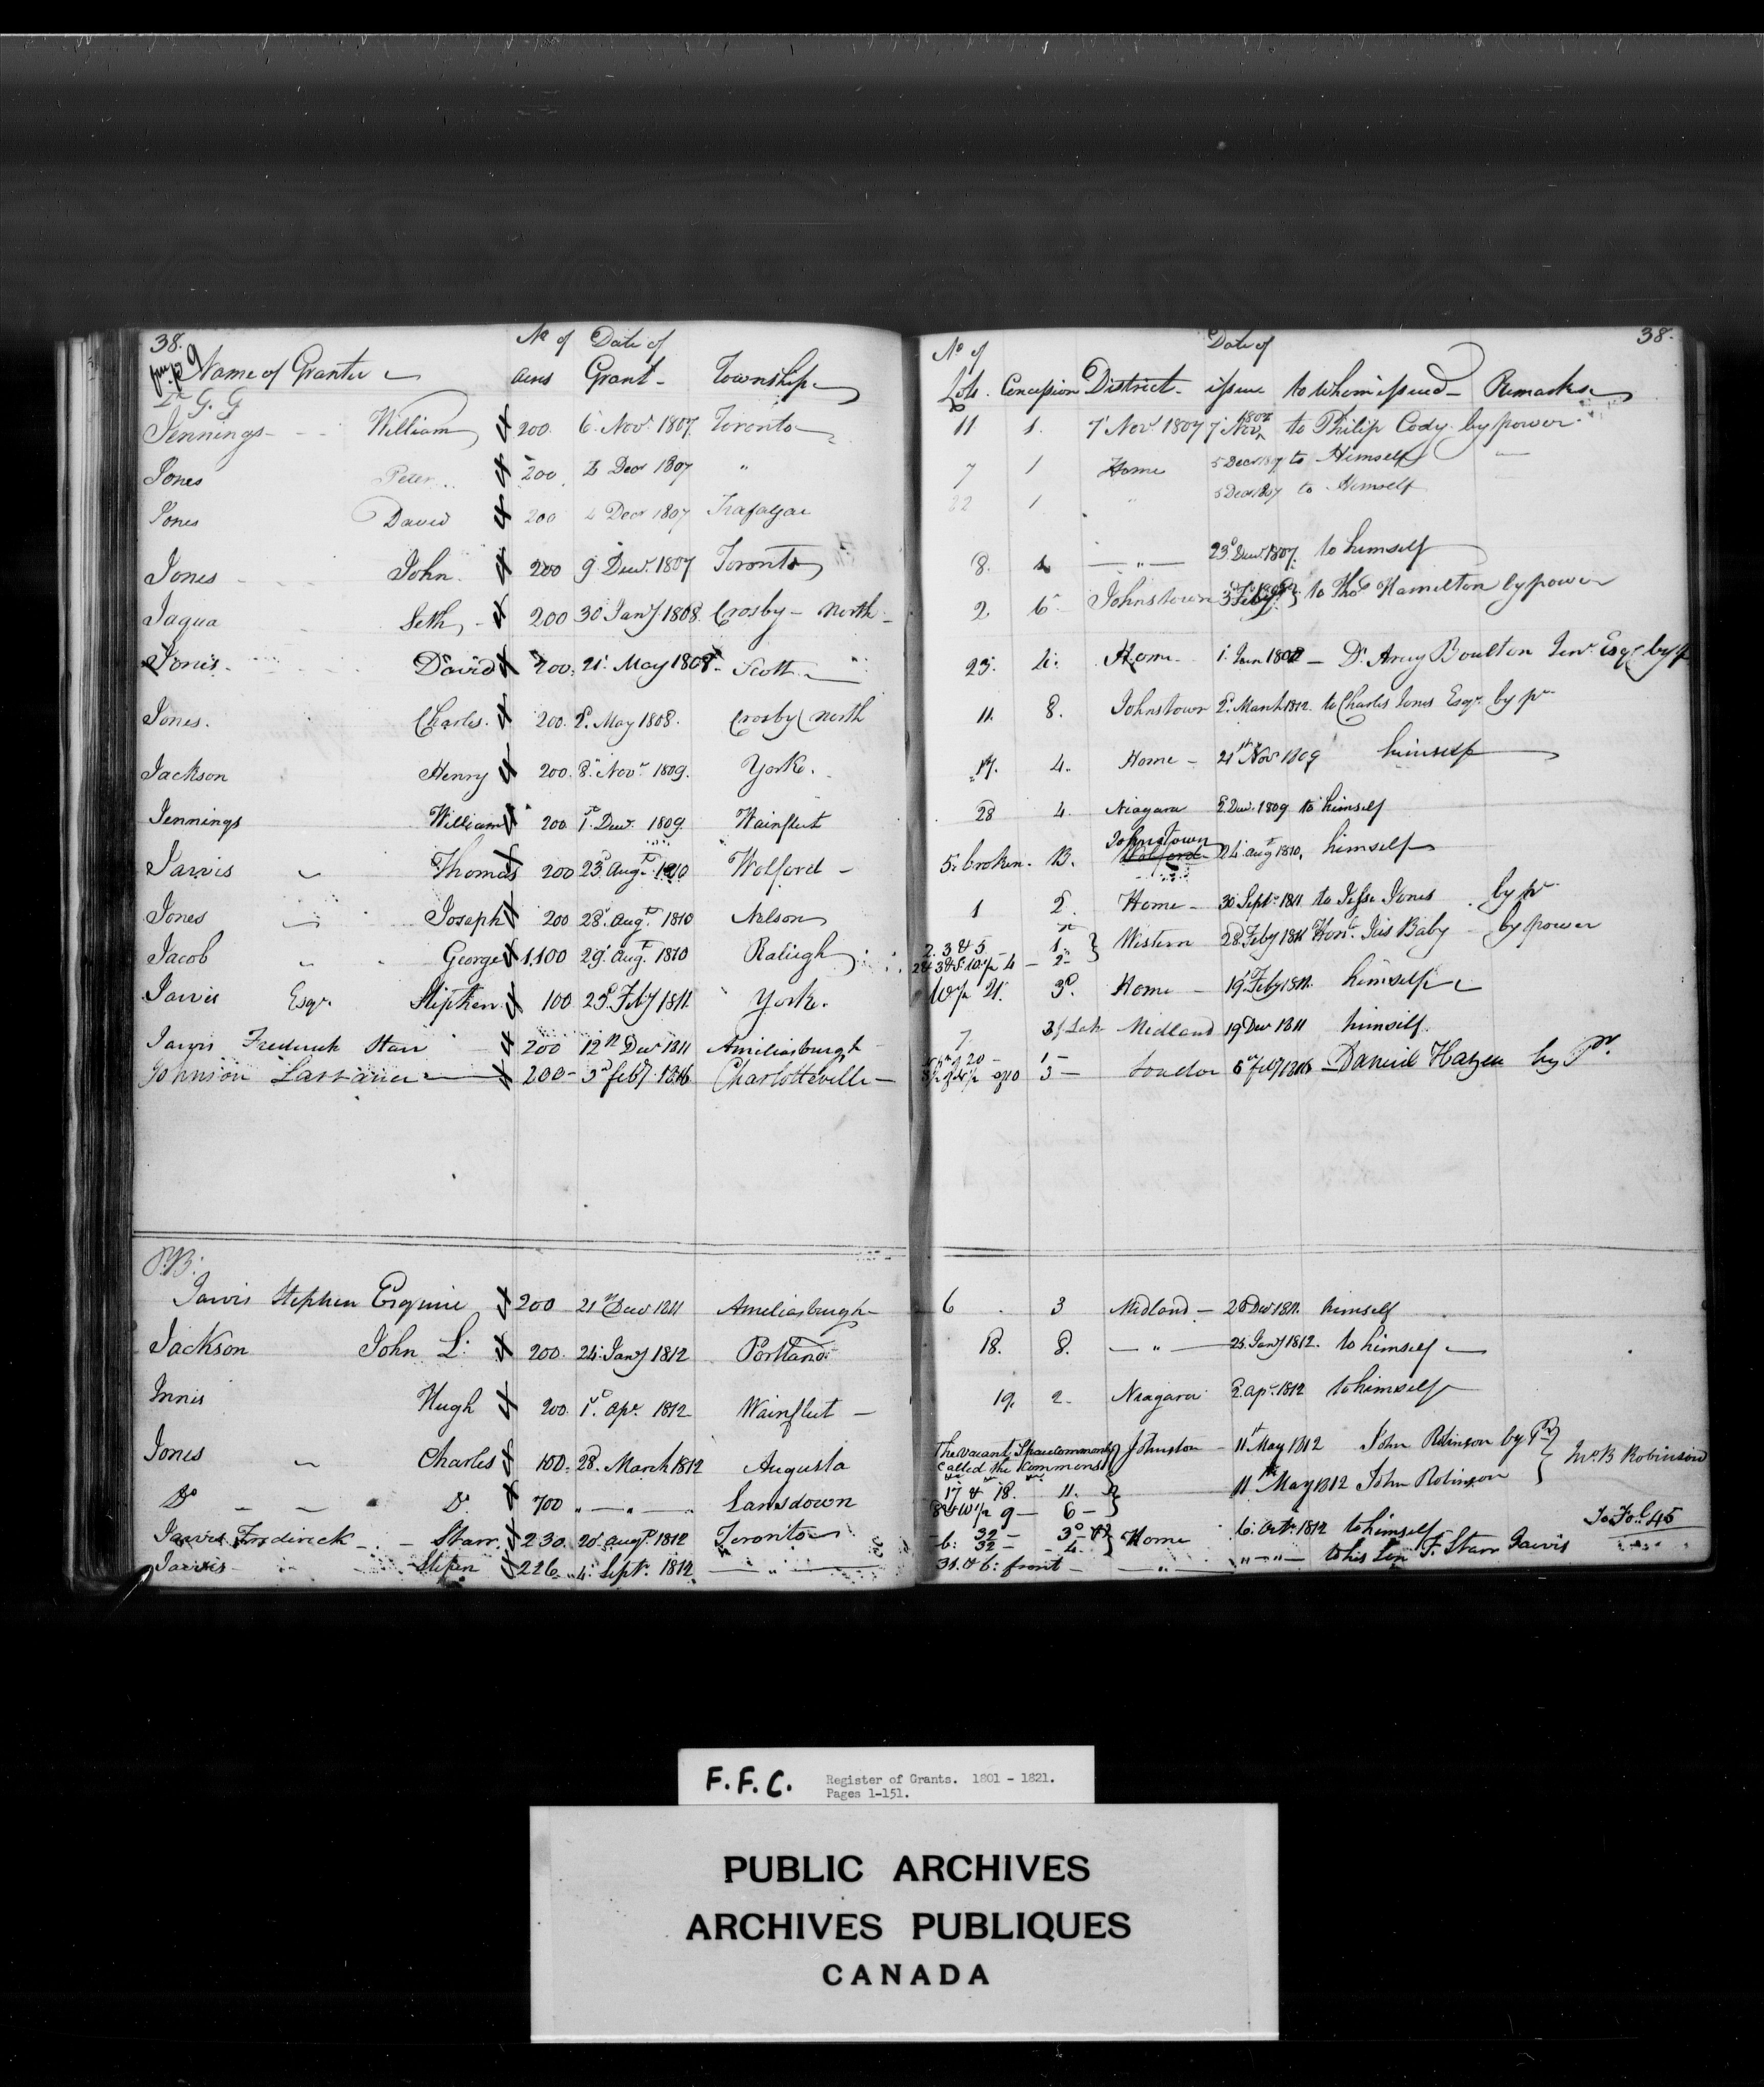 38. No of Date of No of Date of 38.
Name of Grantee acres Grant Township Lots. Concession District issue to whom issued Remarks
Lt. G. G
Jennings William 200 6 Nov. 1807 Toronto 11 1. 7 Nov. 1807 7 Nov. 1807 to Philip Cody by power
Jones Peter 200 Decr 1807 " 7 1 Home 5 Decr 1807 to Himself
Jones David 200 4 Decr 1807 Trafalgar 22 1 " 5 Decr 1807 to Himself
Jones John 200 9 Decr. 1807 Toronto 8. — " — 23d Decr. 1807. to himself
Jaqua Seth 200 30 Jany. 1808 Crosby North 2. 6 Johnstown to Thos Hamilton by power
Jones David 200. 21 May 1808 Scott 23. Home 1. D'Arcy Boulton Junr. Esqr by p
Jones. Charles. 200. 2. May 1808. Crosby North 11. 8. Johnstown 2. March 1812. to Charles Jones Esqr. by pr
Jackson Henry 200. 8. Novr. 1809. York. 17. 4. Home 21st Nov 1809 himself
Jennings William 200 1. Decr. 1809 Wainfleet 28 4. Niagara 2. Decr. 1809 to himself
Jarvis Thomas 200 23d Augt. 1810 Wolford 5. broken. B. Johnstown Wolford 24. Augt 1810. himself
Jones Joseph 200 28. Augt 1810 Nelson 1 2. Home 30 Septr. 1811. to Jesse Jones by pr
Jacob George 1,100 29. Augt. 1810 Raleigh 2. 3 & 5 1. } Western 28. Feby 1811 Honl. Jas Baby by power
2 2
Jarvis Esqr. Stephen 100 23d. Feby 1811 York. W½ 21. 3d. Home 19. Feby 1811. himself
Jarvis Frederick Starr 200 12th Decr 1811 Ameliasburgh 7 Midland 19 Decr 1811 himself.
Johnson 200 3d Feby. 1816 Charlotteville 20 1 London 6 Feby 1816 Daniel Hazen by Pr.
3
P.B:
Jarvis Stephen Esquire 200 21st Decr 1811 Ameliasburgh 6 3 Midland 26 Decr 1811. himself
Jackson John L: 200. 24. Jany 1812 Portland 18. 8. — " — 25. Jany 1812. to himself
Innis Hugh 200. 1st. Apr. 1812 Wainfleet 19. 2. Niagara 2. Apr. 1812 to himself
Jones Charles 100. 28. March 1812 Augusta The vacant Space commonly called the Kommons } Johnston 11th May 1812 John Robinson by Pr } Jno. B Robinson
Do Do. 700 " — " — Lansdown 17 & 18. 11. 11th May 1812 John Robinson
8 & W½ 9 — 6 }
Jarvis Frederick Starr. 230. 20. Augt 1812 Toronto 32 3d } Home 6. Octr. 1812 to himself To Fol. 45
6: 32 4.
Jarvis Stepen 226 4. Septr. 1812 — " — 31. & 6: front — " — " — " — to his Son F. Starr Jarvis
F.F.C. Register of Grants. 1801 - 1821.
Pages 1-151.
PUBLIC ARCHIVES
ARCHIVES PUBLIQUES
CANADA